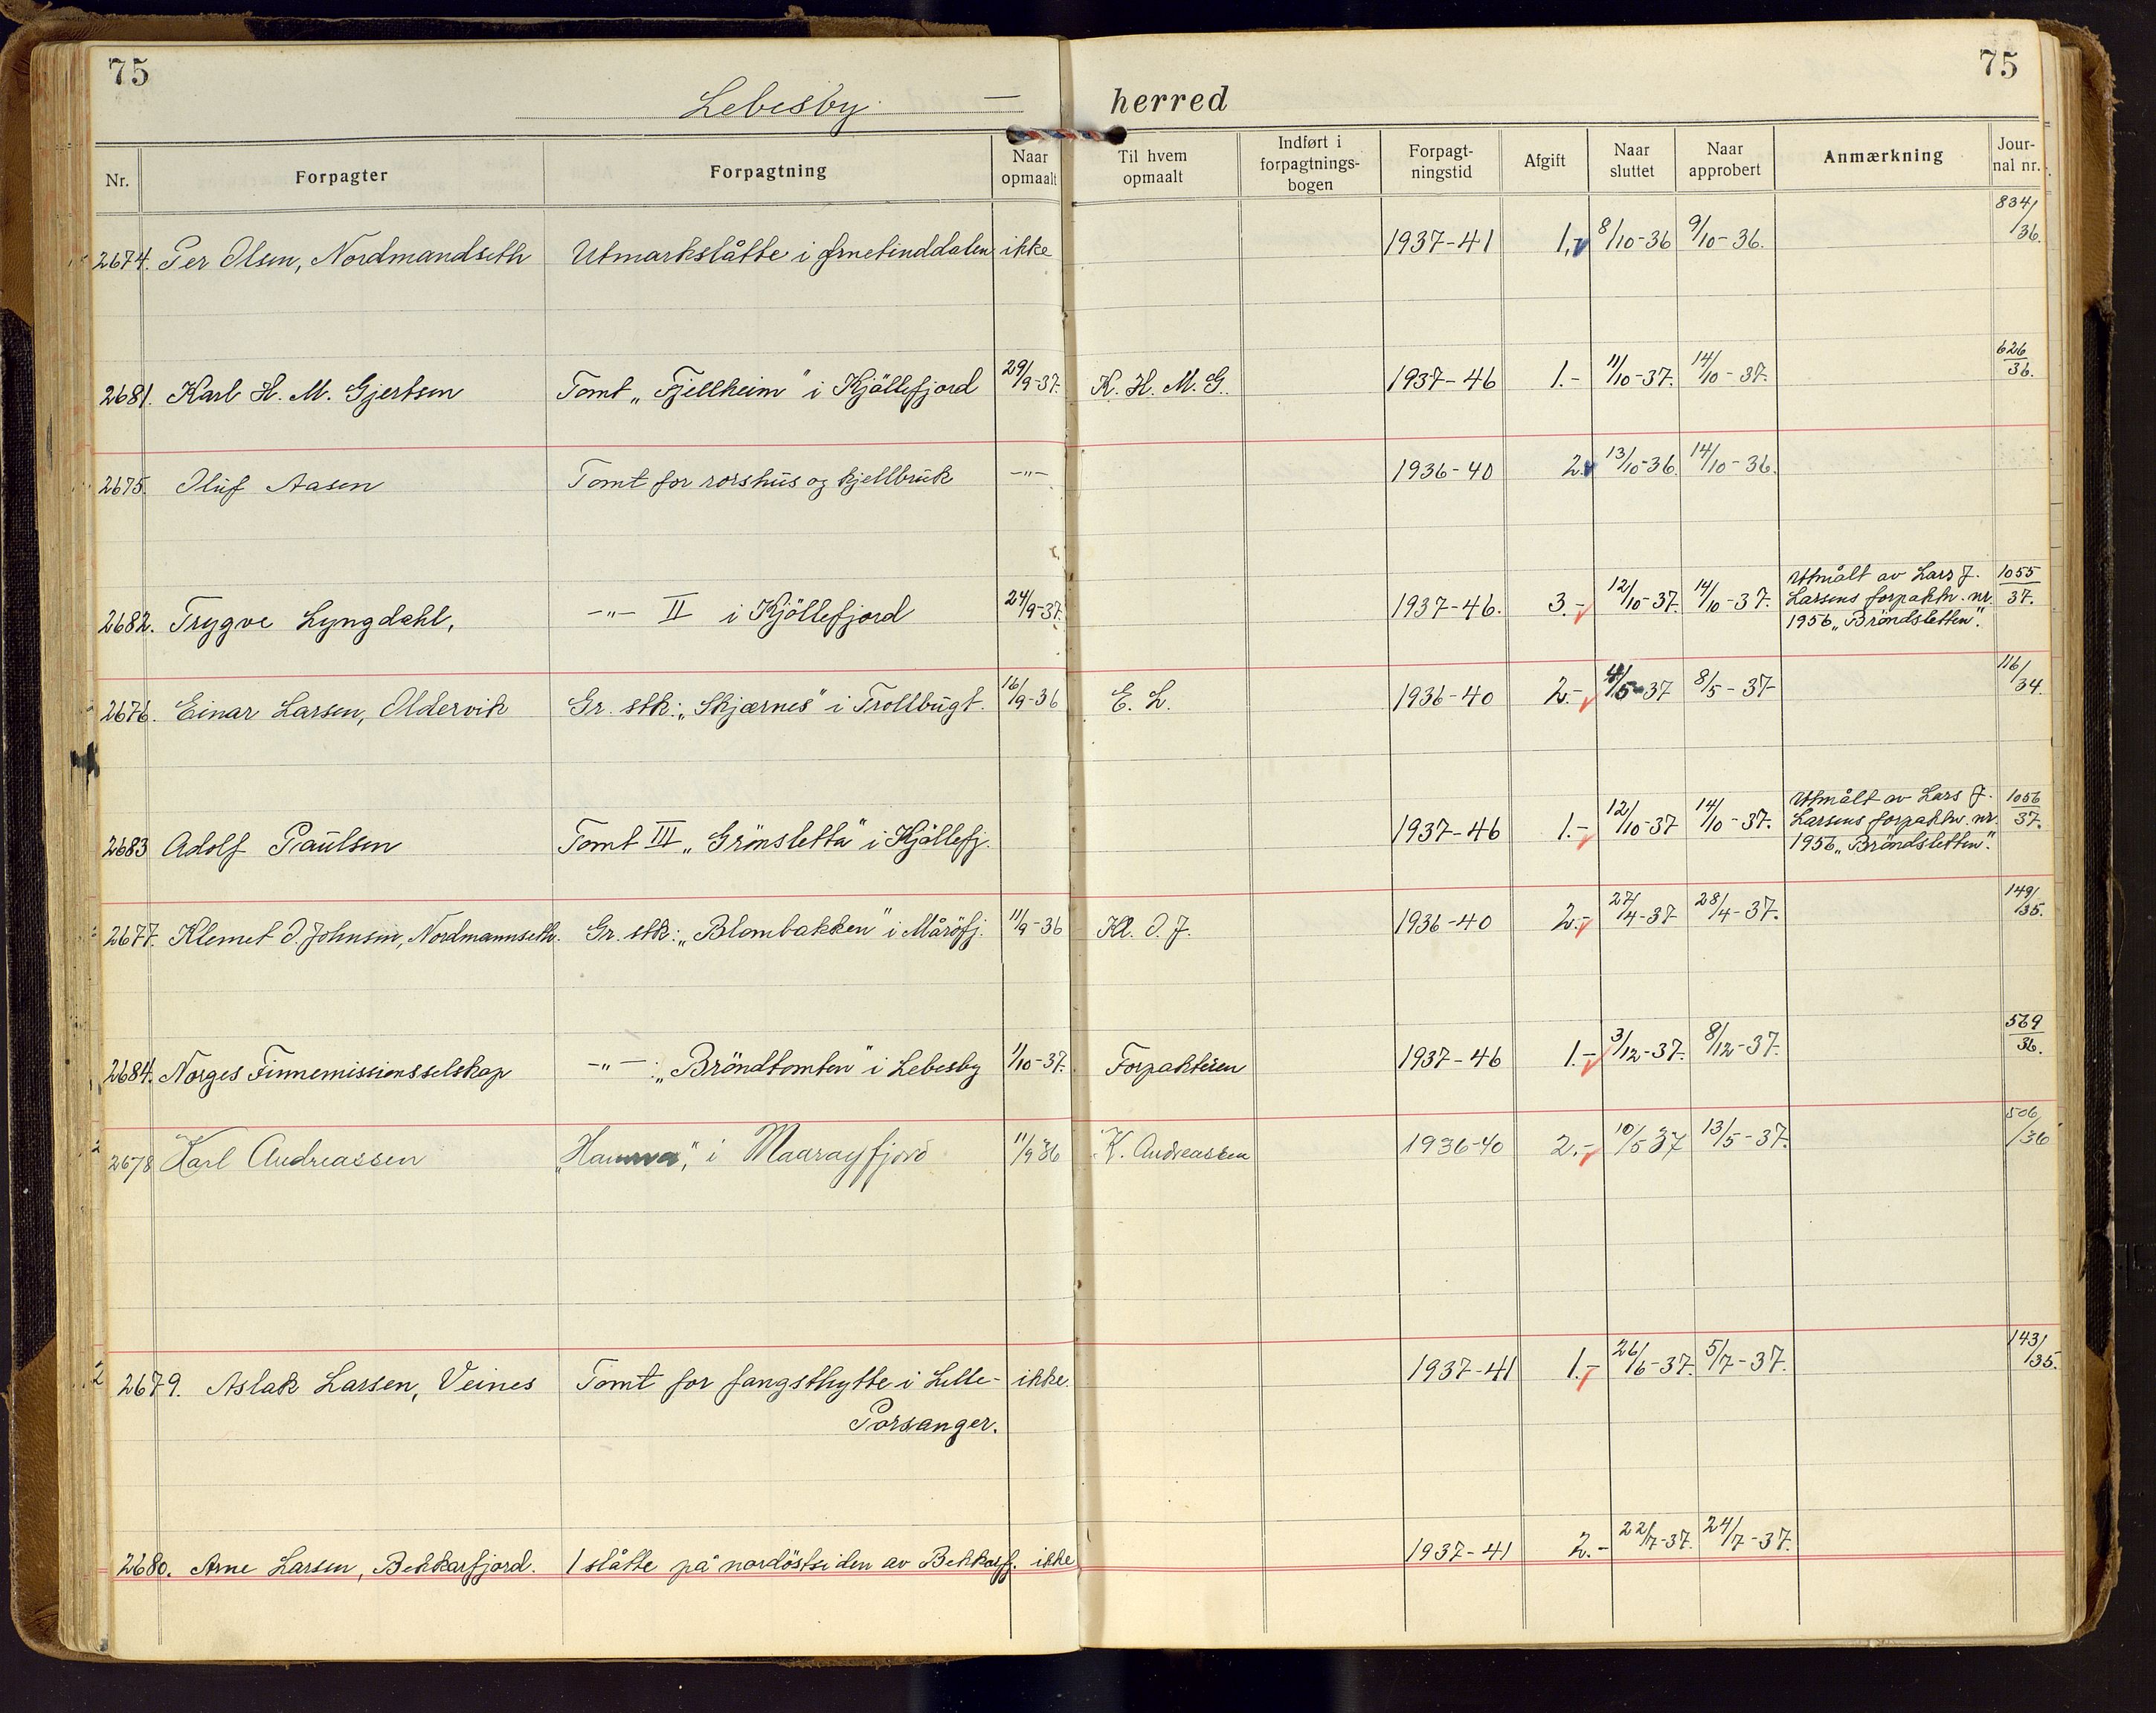 75
75
Lebesby — herred
Nr. Forpagter Forpagtning Naar opmaalt Til hvem opmaalt Indført i forpagtnings-bogen Forpagt-ningstid Afgift Naar sluttet Naar approbert Anmærkning Jour-nal nr.
2674. Per Olsen, Nordmandseth Utmarkslåtte i Ørnetinddalen ikke 1937-41 1,- 8/10-36 9/10-36. 834/36.
2681. Karl H. M. Gjertsen Tomt „Fjellheim" i Kjöllefjord 29/9-37. K. H. M. G. 1937-46 1.- 11/10-37. 14/10-37. 626/36.
2675. Oluf Aasen Tomt for rorshus og kjellbruk -"- 1936-40 2.- 13/10-36. 14/10-36.
2682. Trygve Lyngdahl, -"- II i Kjöllefjord 24/9-37. 1937-46. 3.- 12/10-37. 14/10-37. Utmålt av Lars J. 1055/37.
Larsens forpaktn. nr.
1956 „Bröndsletten".
2676. Einar Larsen, Oldervik Gr. stk: „Skjærnes" i Trollbugt. 16/9-36 E. L. 1936-40 2.- 4/5-37 8/5-37- 116/34.
2683 Adolf Paulsen Tomt III „Grönsletta" i Kjöllefj. 1937-46 1.- 12/10-37 14/10-37. Utmålt av Lars J. 1056/37.
Larsens forpaktn. nr.
1956 „Bröndsletten".
2677. Klemet O. Johnsen, Nordmannseth. Gr. stk: „Blombakken" i Måröfj. 11/9-36 Kl. O. J. 1936-40 2.- 27/4-37 28/4-37. 149/35.
2684. Norges Finnemissionsselskap -"-: „Bröndtomten" i Lebesby 1/10-37. Forpakteren 1937-46 1.- 3/12-37. 8/12-37. 569/36.
2678 Karl Andreassen i Maarøyfjord 11/9 36 K. Andreassen 1936-40 2.- 10/5 37 13/5-37. 506/36
2679. Aslak Larsen, Veines Tomt for fangsthytte i Lille- ikke. 1937-41 1.- 26/6-37. 5/7-37. 143/35.
Porsanger.
2680. Arne Larsen, Bekkarfjord. 1 slåtte på nordöstsiden av Bekkarfj. ikke 1937-41 2.- 22/7-37. 24/7-37.